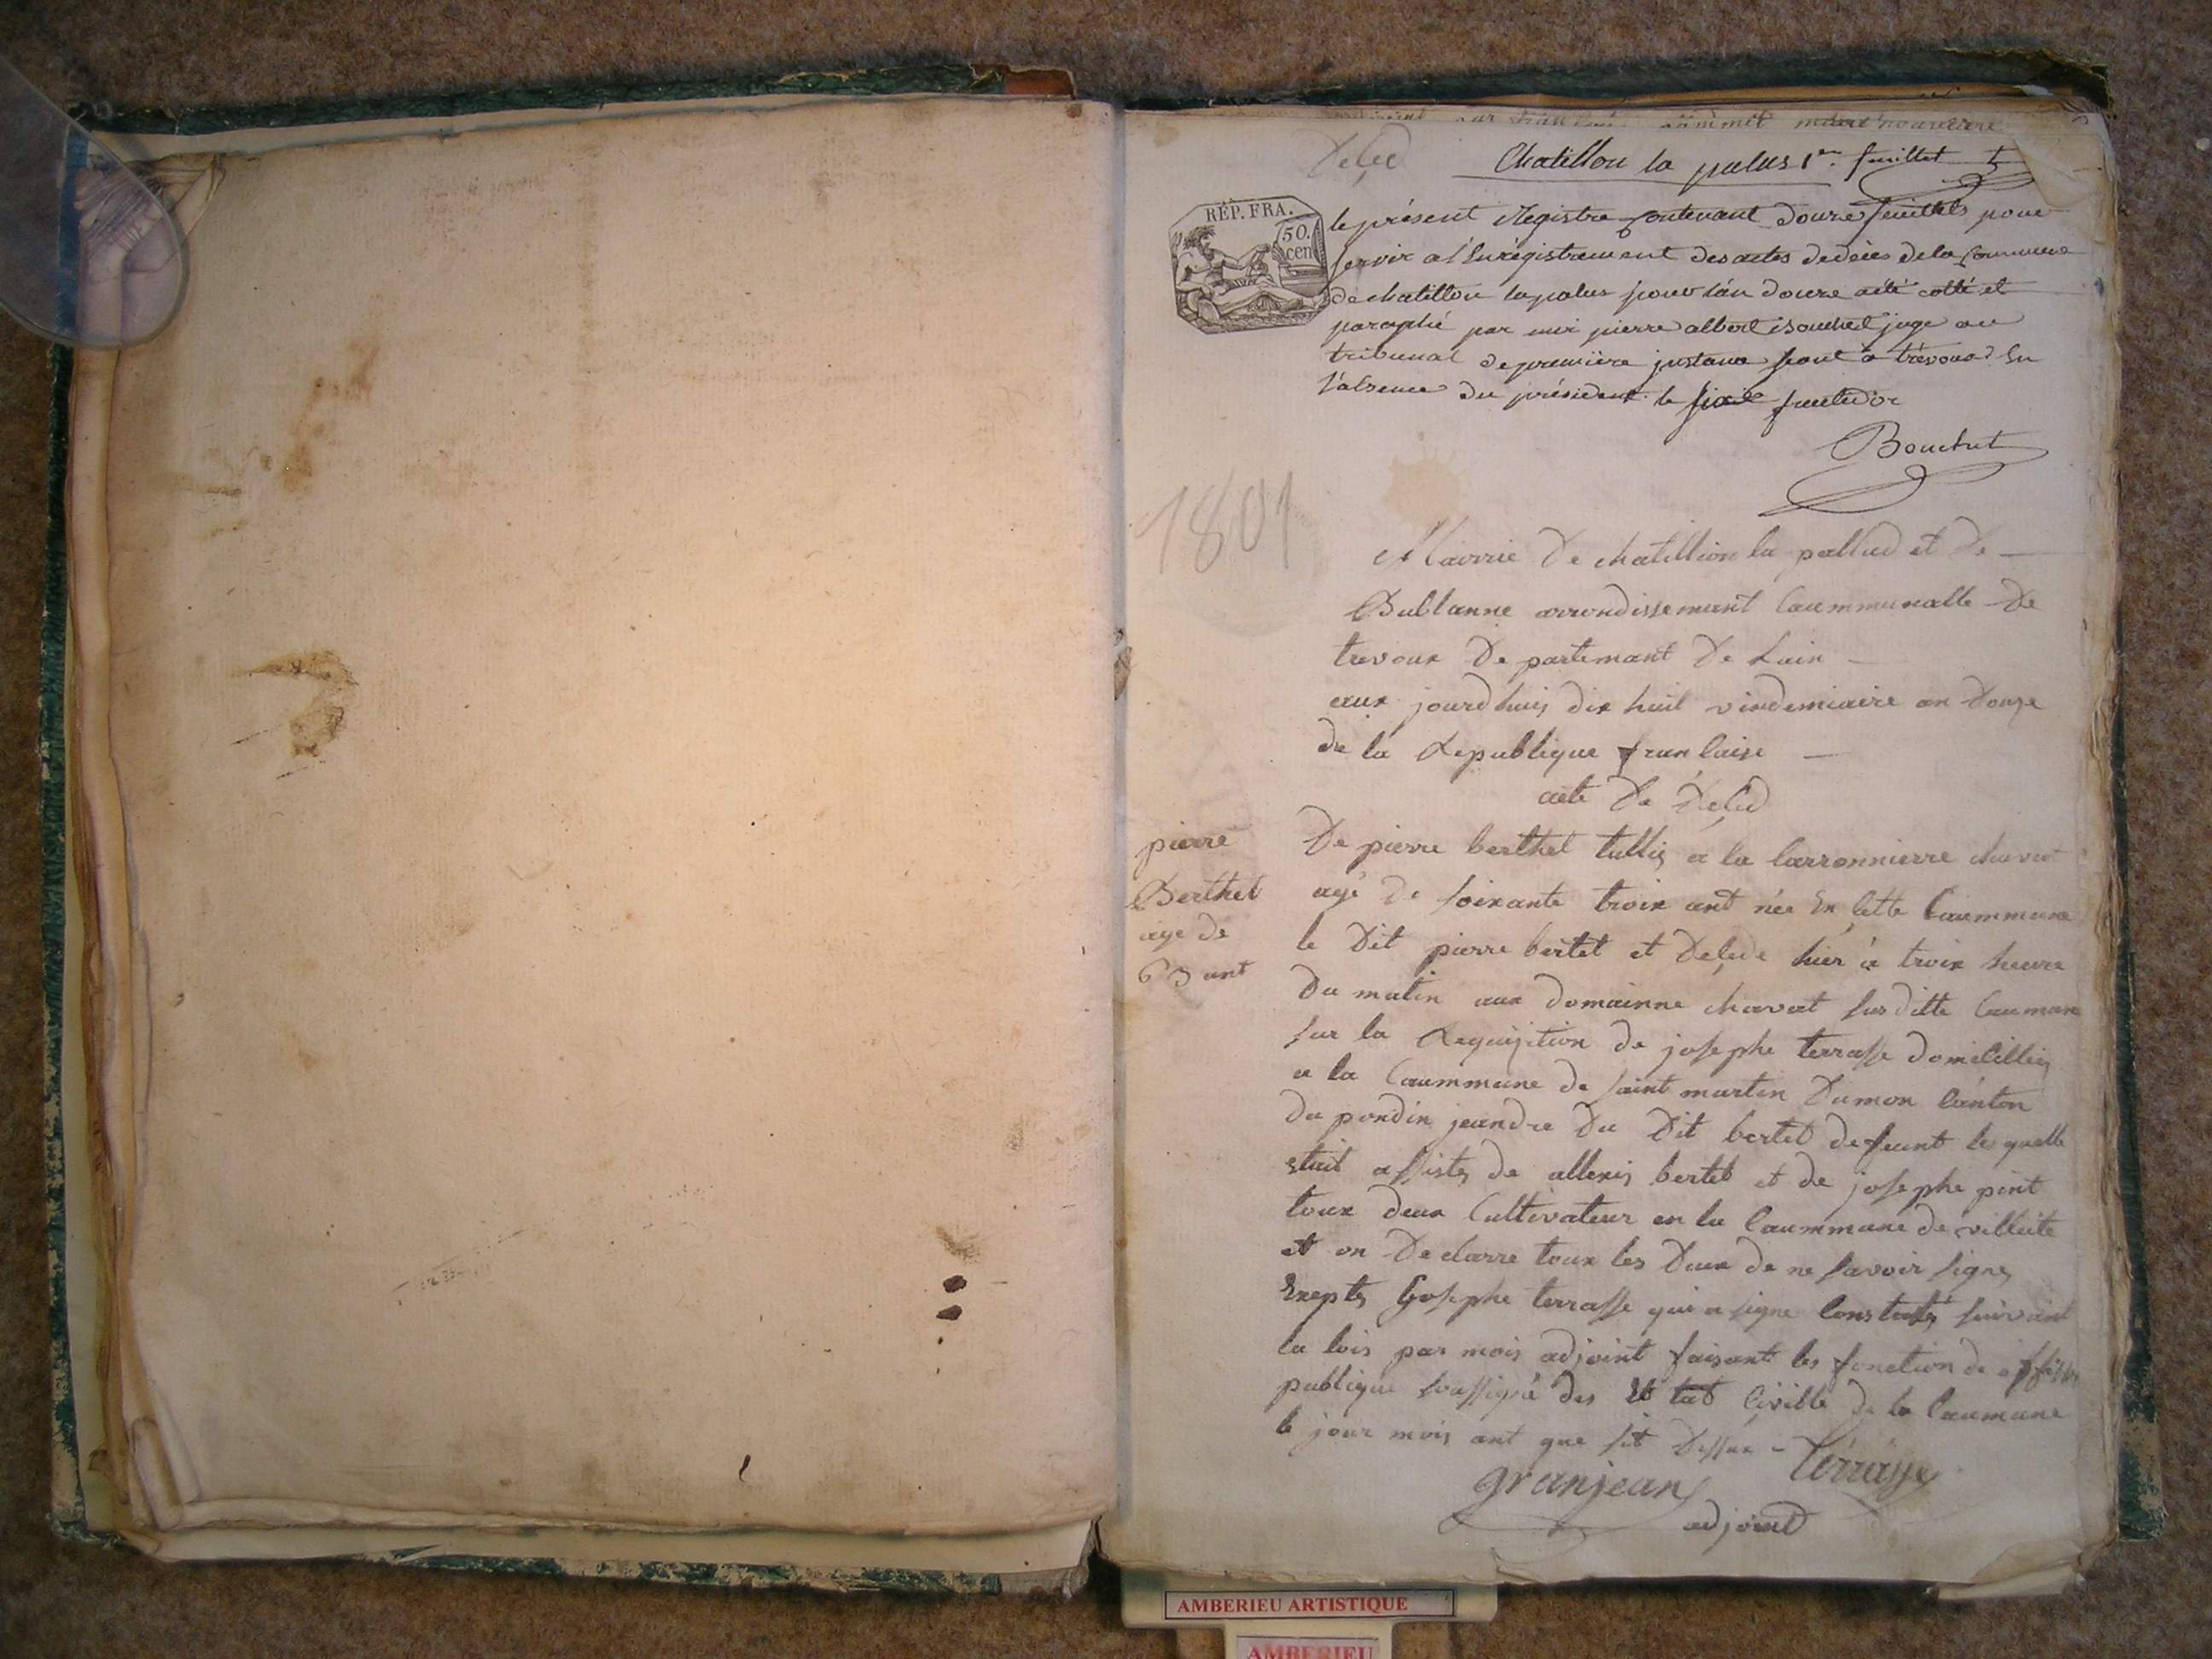 Deçed
Chatillon la palus 1er feuillet
RÉP. FRA.
50.
cen
le présent Registre contenant douze feuillets pour
servir a l'Enrégistrement des actes de décès de la Commune
de chatillon la palus pour l'an douze a été cotté et
paraphé par moi pierre albert Bouchet juge au
tribunal de première instance séant à trévoux En
l'absence du président le fructidor
Bouchet
1801
Mairrie De chatillion la pallud et De
Bublanne arrondissemant Caummunalle De
trevoux De partemant De Lain
aux jourdhuis dix huit vindemiaire an Douze
de la Republique franCaise
acte De Deçed
pierre
Berthet
age de
63 ant
De pierre berthet a la Carronnierre chavat
agé De soixante troix ant née En Cette Caummune
le Dit pierre bertet et Deçede hier à troix heure
Du matin aux domainne chavat sus ditte Caumune
sur la Requisition de josephe terrasse domicillié
a la Caummune de saint martin Dumon Canton
du pondin jeandre Du Dit bertet defeunt lesquelle
etait assisté de allexis bertet et de josephe pint
toux deux Cultivateur en la Caummune de villeite
et on Declarre toux les Deux de ne savoir signe
Exepté Gosephe terrasse qui a signe Constaté suivant
la lois par mois adjoint faisant les fonction de
publique soussigné des Civille De la Caumune
le jour mois ant que sit Dessux
granjean
terrasse
adjoint
AMBERIEU ARTISTIQUE
AMBERIEU